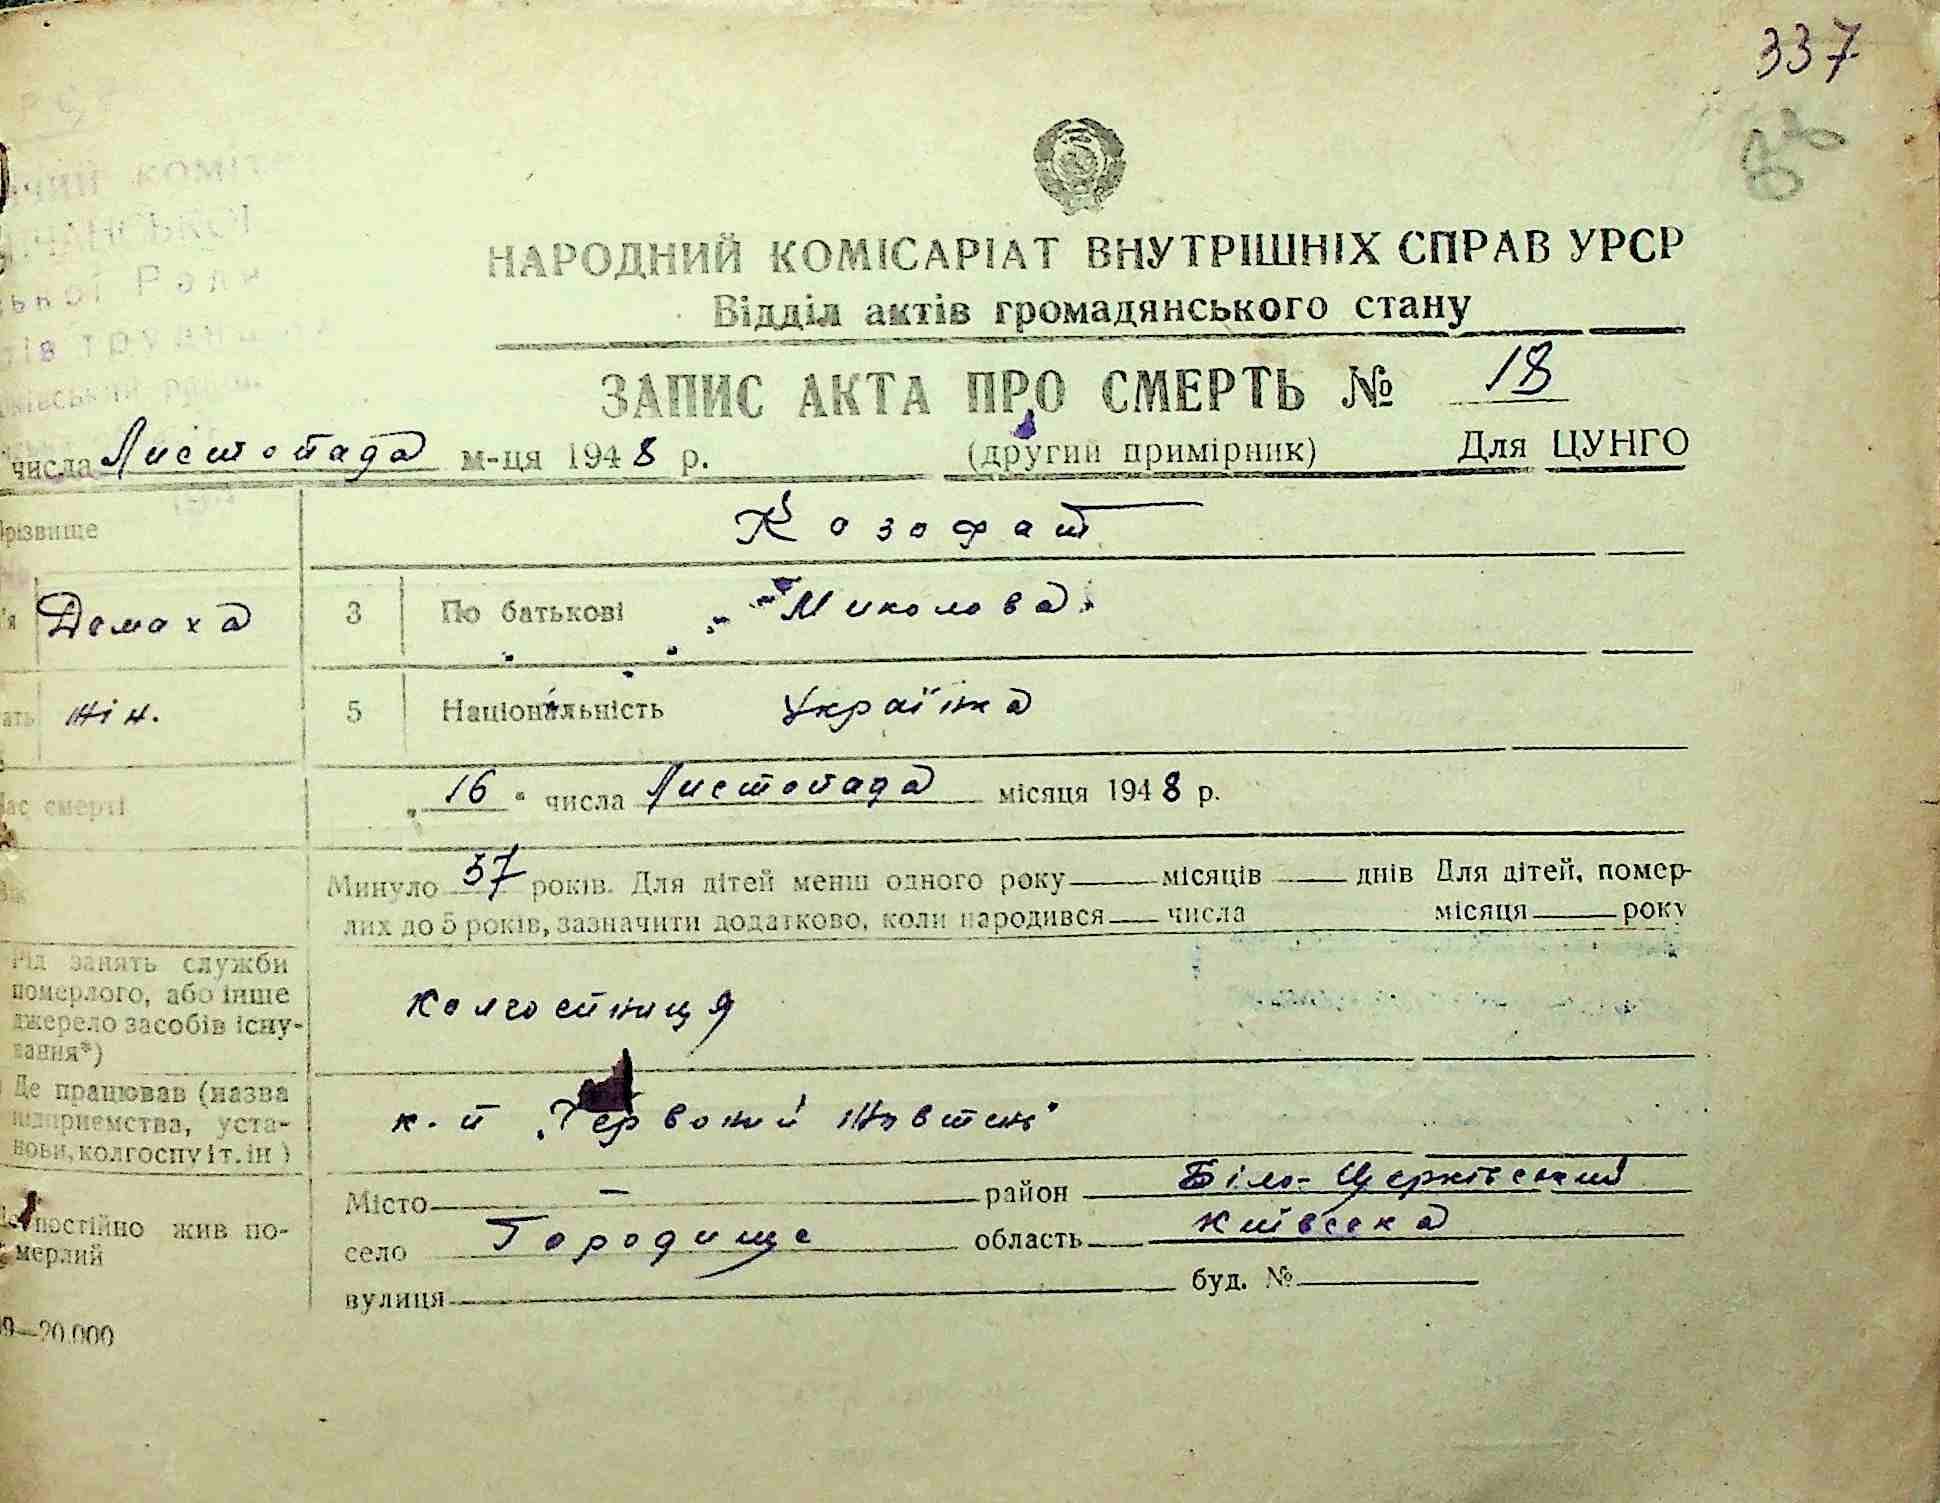 337
КОМІТ
НАРОДНИЙ КОМІСАРІАТ ВНУТРІШНІХ СПРАВ УРСР
Відділ актів громадянського стану
ЗАПИС АКТА ПРО СМЕРТЬ № 18
числа Листопада м-ця 1948 р. (другий примірник) Для ЦУНГО
різвище Козофат
Домаха 3 По батькові Миколова
жін. 5 Національність Українка
час смерті „16“ числа Листопада місяця 1948 р.
Минуло 37 років. Для дітей менш одного року місяців днів Для дітей, помер-
лих до 5 років, зазначити додатково, коли народився числа місяця року
Рід занять служби
померлого, або інше
джерело засобів існу-
вання*)
колгоспниця
Де працював (назва
підприємства, уста-
нови, колгоспу і т. ін )
к-п „Червоний Жовтень"
постійно жив по-
мерлий
Місто — район Біло-Церківський
село Городище область Київська
вулиця буд. №
9—20.000